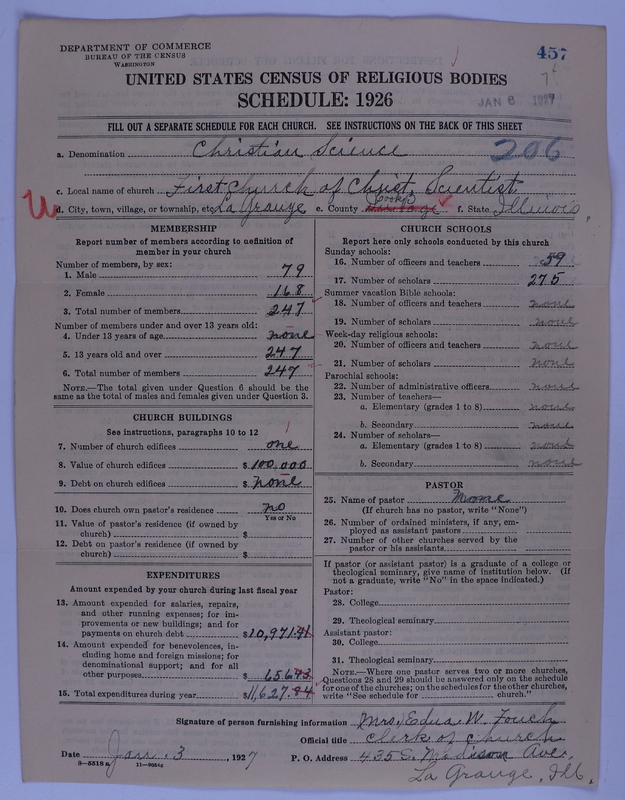 DEPARTMENT OF COMMERCE
BUREAU OF THE CENSUS
WASHINGTON
457
UNITED STATES CENSUS OF RELIGIOUS BODIES
SCHEDULE: 1926
JAN 6 1927
FILL OUT A SEPARATE SCHEDULE FOR EACH CHURCH. SEE INSTRUCTIONS ON THE BACK OF THIS SHEET
a. Denomination Christian Science 206
c. Local name of church First Church of Christ, Scientist
d. City, town, village, or township, etc. La Grange e. County Cook f. State Illinois,
MEMBERSHIP
Report number of members according to definition of
member in your church
Number of members, by sex:
1. Male 79
2. Female 168
3. Total number of members 247
Number of members under and over 13 years old:
4. Under 13 years of age none
5. 13 years old and over 247
6. Total number of members 247
NOTE.—The total given under Question 6 should be the
same as the total of males and females given under Question 3.
CHURCH BUILDINGS
See instructions, paragraphs 10 to 12
7. Number of church edifices one
8. Value of church edifices $100,000
9. Debt on church edifices $none
10. Does church own pastor's residence no
Yes or No
11. Value of pastor's residence (if owned by
church) $
12. Debt on pastor's residence (if owned by
church) $
EXPENDITURES
Amount expended by your church during last fiscal year
13. Amount expended for salaries, repairs,
and other running expenses; for im-
provements or new buildings; and for
payments on church debt $10,971.41
14. Amount expended for benevolences, in-
cluding home and foreign missions; for
denominational support; and for all
other purposes $656.43
15. Total expenditures during year $11,627.84
CHURCH SCHOOLS
Report here only schools conducted by this church
Sunday schools:
16. Number of officers and teachers 59
17. Number of scholars 275
Summer vacation Bible schools:
18. Number of officers and teachers none
19. Number of scholars none
Week-day religious schools:
20. Number of officers and teachers none
21. Number of scholars none
Parochial schools:
22. Number of administrative officers none
23. Number of teachers—
a. Elementary (grades 1 to 8) none
b. Secondary none
24. Number of scholars—
a. Elementary (grades 1 to 8) none
b. Secondary none
PASTOR
25. Name of pastor None
(If church has no pastor, write "None")
26. Number of ordained ministers, if any, em-
ployed as assistant pastors
27. Number of other churches served by the
pastor or his assistants
If pastor (or assistant pastor) is a graduate of a college or
theological seminary, give name of institution below. (If
not a graduate, write "No" in the space indicated.)
Pastor:
28. College
29. Theological seminary
Assistant pastor:
30. College
31. Theological seminary
NOTE.—Where one pastor serves two or more churches,
Questions 28 and 29 should be answered only on the schedule
for one of the churches; on the schedules for the other churches,
write "See schedule for church."
Signature of person furnishing information Mrs. Edna W. Fouch
Official title Clerk of church
Date Jan. 3, 1927 P. O. Address 435 S. Madison Ave,
8-5518 a 11-9054
La Grange, Ill.